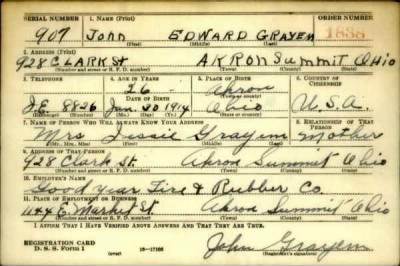 SERIAL NUMBER 1. NAME (Print) ORDER NUMBER
907 John EDWARD GRAYEM 1838
(First) (Middle) (Last)
2. ADDRESS (Print)
928 CLARK St AKRON Summit Ohio
(Number and street or R. F. D. number) (Town) (County) (State)
3. TELEPHONE 4. AGE IN YEARS 5. PLACE OF BIRTH 6. COUNTRY OF CITIZENSHIP
26 Akron
DATE OF BIRTH
J.E. 8826 Jan. 20 1914 Ohio U.S.A.
(Exchange) (Number) (Mo.) (Day) (Yr.) (State or country)
7. NAME OF PERSON WHO WILL ALWAYS KNOW YOUR ADDRESS 8. RELATIONSHIP OF THAT PERSON
Mrs Jessie Grayem Mother
(Mr., Mrs., Miss) (First) (Middle) (Last)
9. ADDRESS OF THAT PERSON
928 Clark St. Akron Summit Ohio
(Number and street or R. F. D. number) (Town) (County) (State)
10. EMPLOYER'S NAME
Good year Tire & Rubber Co.
11. PLACE OF EMPLOYMENT OR BUSINESS
E. Market St. Akron Summit Ohio
(Number and street or R. F. D. number) (Town) (County) (State)
I AFFIRM THAT I HAVE VERIFIED ABOVE ANSWERS AND THAT THEY ARE TRUE.
REGISTRATION CARD
D. S. S. Form 1 (over) 16-17105 John Grayem
(Registrant's signature)